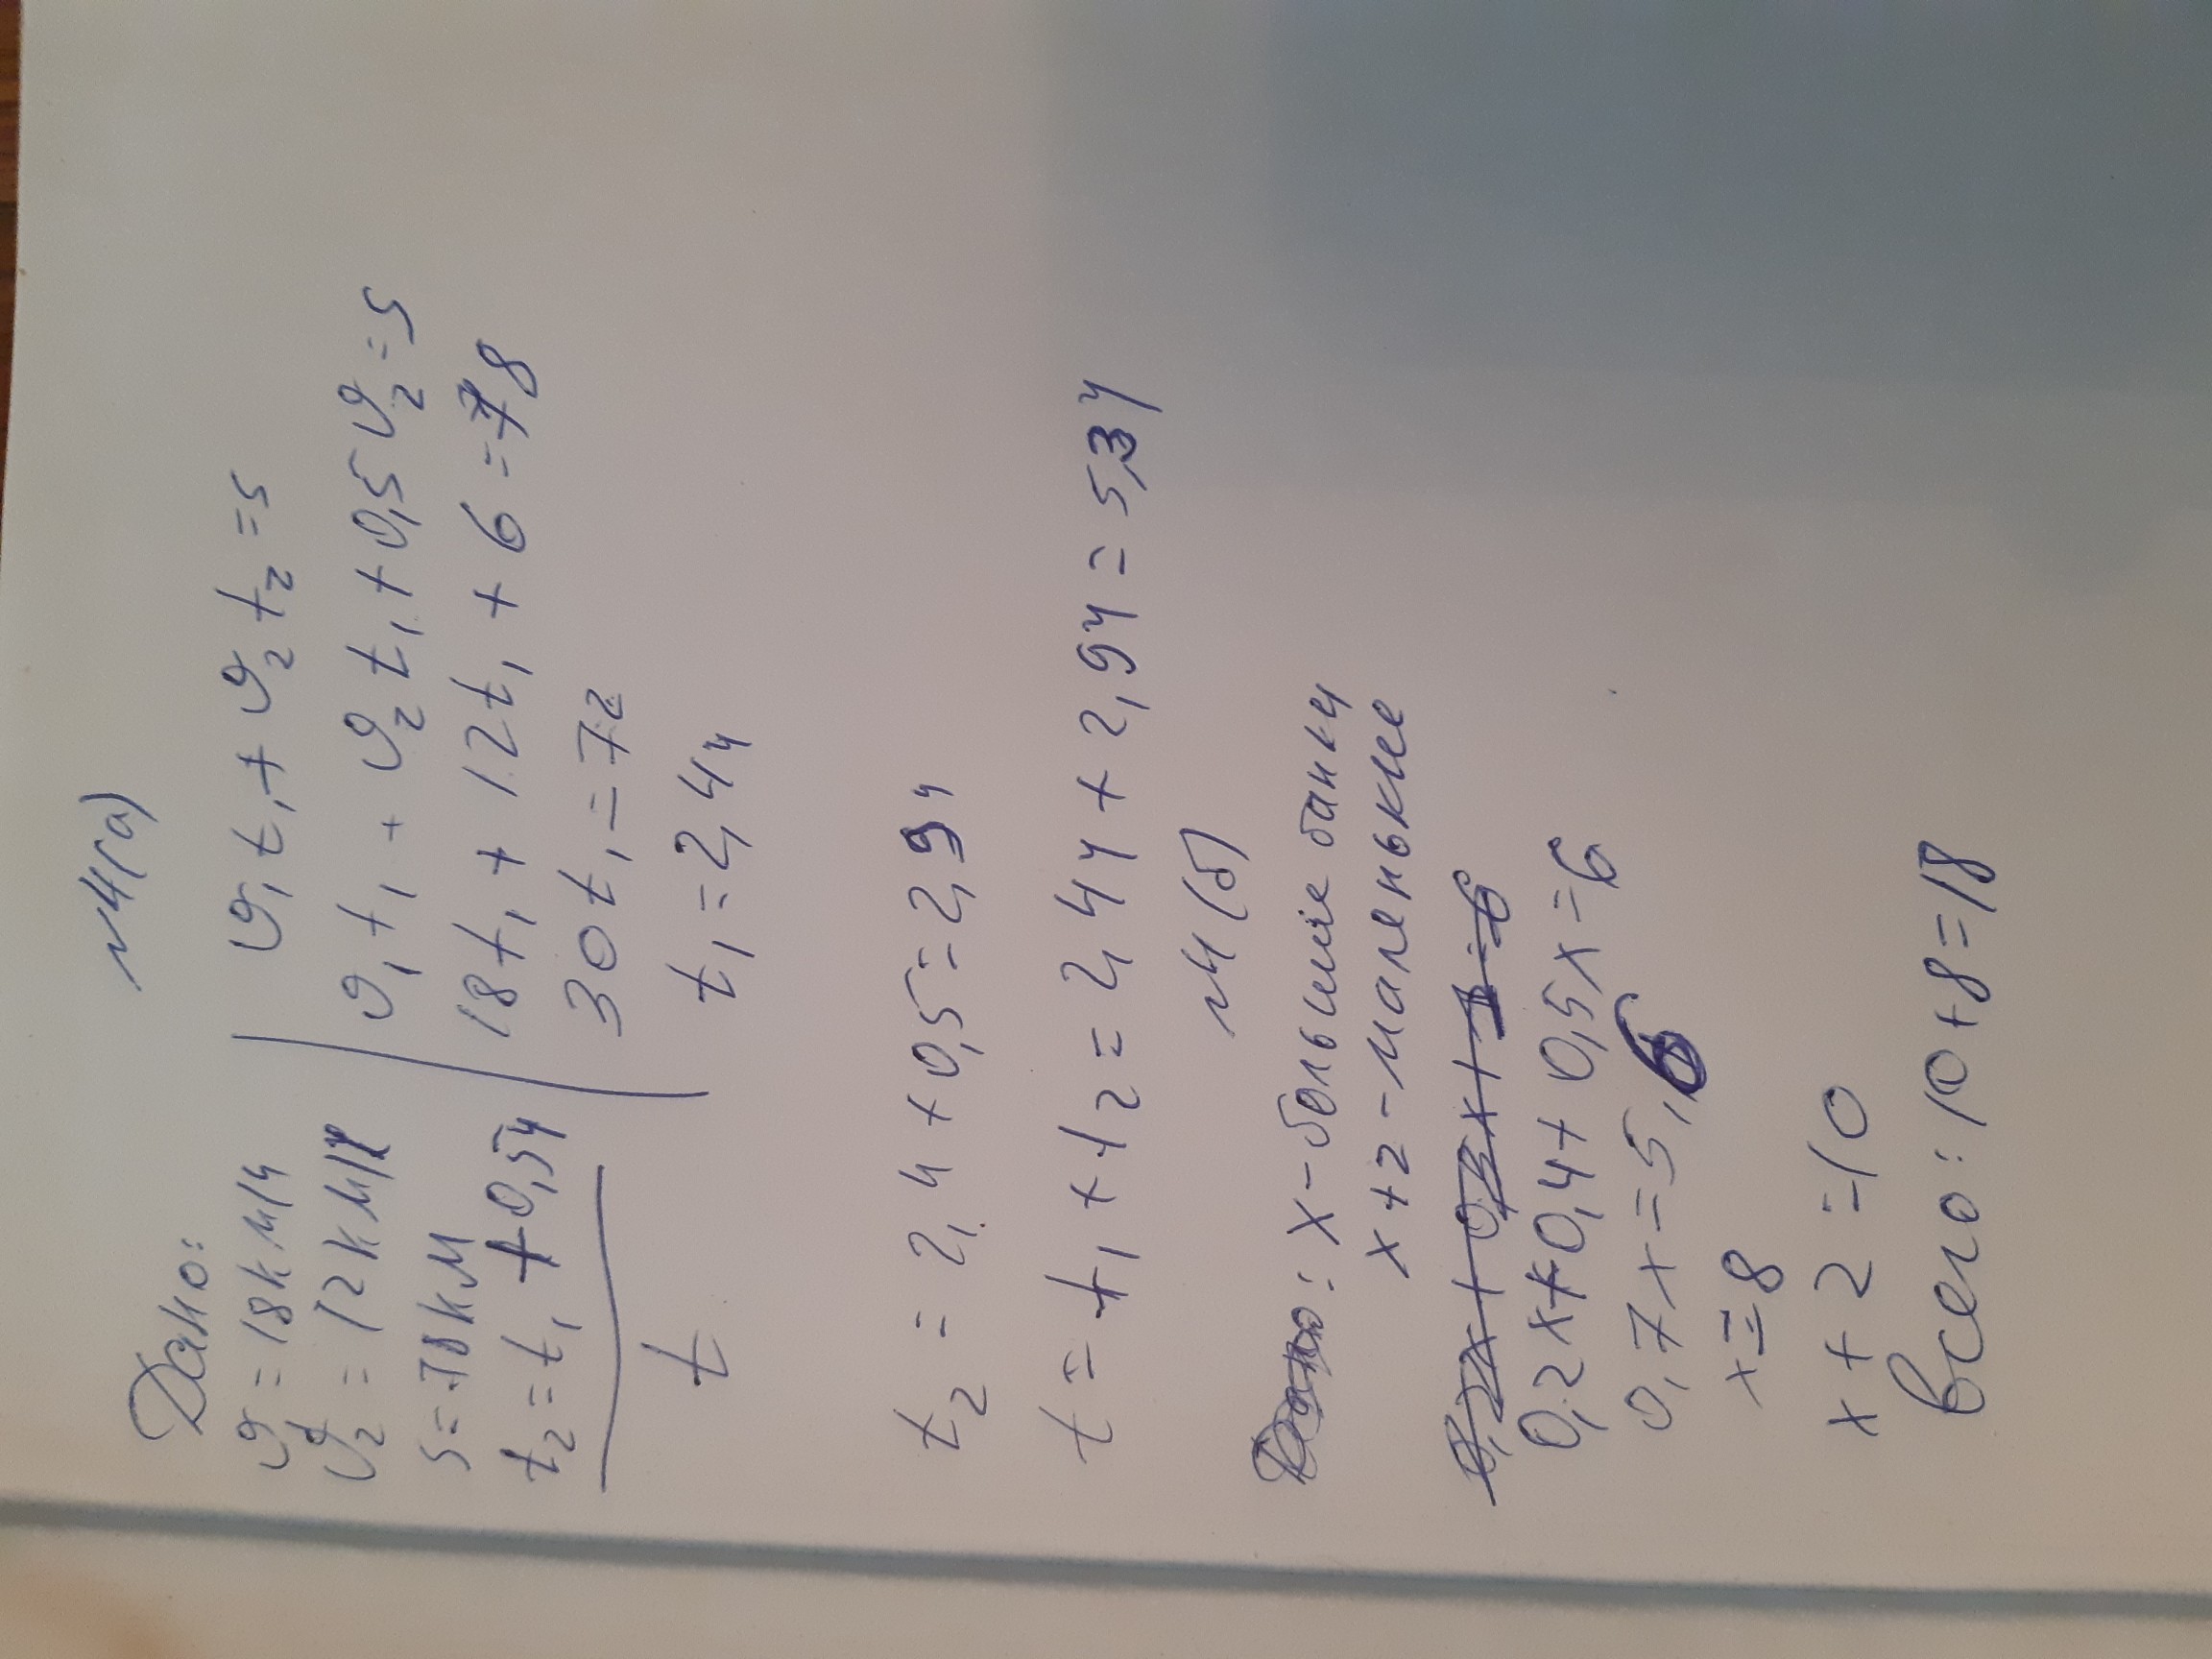 №4(а)
Дано:
υ₁=18км/ч
υ₂=12км/ч
s=78км
t₂=t₁+0,5ч
t
υ₁t₁+υ₂t₂=s
υ₁t₁+υ₂t₁+0,5υ₂=s
18t₁+12t₁+6=78
30t₁=72
t₁=2,4ч
t₂=2,4+0,5=2,9ч
t=t₁+t₂=2,4ч+2,9ч=5,3ч
№4(б)
: x-большие банки
x+2-маленькие
0,2x+0,4+0,5x=6
0,7x=5,6
x=8
x+2=10
Всего: 10+8=18